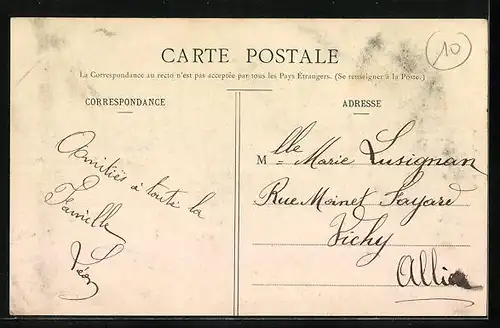 CARTE POSTALE
10
La Correspondance au recto n'est pas acceptée par tous les Pays Étrangers. (Se renseigner à la Poste.)
CORRESPONDANCE
ADRESSE
Amitiés à toute la
Famille
Léon
Mlle Marie Lusignan
Rue Moinet Fayard
Vichy
Allier